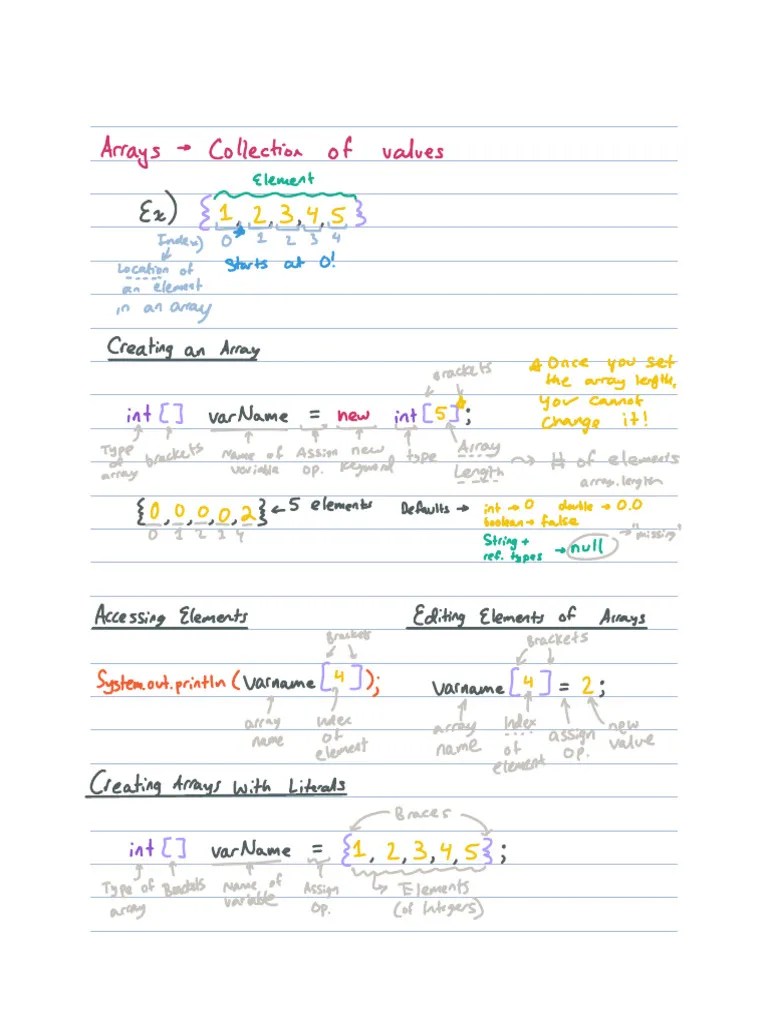 Arrays → Collection of values
Element
Ex) {1, 2, 3, 4, 5}
Index) 0 1 2 3 4
* Starts at 0!
Location of
an element
in an array
Creating an Array
Brackets
* Once you set
the array length,
you cannot
change it!
int [] varName = new int [5]*;
Type of array
brackets
Name of variable
Assign op.
new keyword
type
Array Length → # of elements
array.length
{0, 0, 0, 0, 2} ← 5 elements
0 1 2 3 4
Defaults → int → 0 double → 0.0
boolean → false
String +
ref. types → null → "missing"
Accessing Elements
Brackets
System.out.println (varname [4]);
array name
index of element
Editing Elements of Arrays
Brackets
varname [4] = 2;
array name
index of element
assign op.
new value
Creating Arrays with Literals
Braces
int [] varName = {1, 2, 3, 4, 5};
Type of array
Name of variable
Assign Op.
Elements
(of Integers)